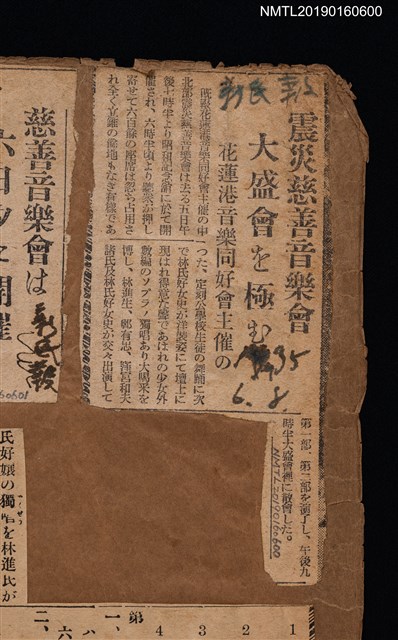 NMTL20190160600
新民報
震災慈善音樂會
大盛會を極む
花蓮港音樂同好會主催の
1935
6.8.
既報花蓮港音樂同好會主催の中
北部震災慈善音樂會は去る五日午
後七時半より昭和記念館に於て開
催され、六時半頃より聽衆が押し
寄せて六百餘の座席は忽ち占用さ
れ全く立錐の餘地もなき盛況であ
つた、定刻公學校生徒の舞踊に次
で林氏好女史が洋裝姿にて壇上に
現はれ得意な喉であはれの少女外
數編のソプラノ獨唱あり大喝采を
博し、林進生、鄭有忠、窪宮和夫
諸氏及林氏好女史が交々出演して
第一部、第二部を演了し、午後九
時半大盛會裡に散會した。
NMTL20190160600
慈善音樂會は
六日夕に開催
新民報
60601
氏好嬢の獨唱を林進氏が
第
一、
二、
六
4
3
2
1